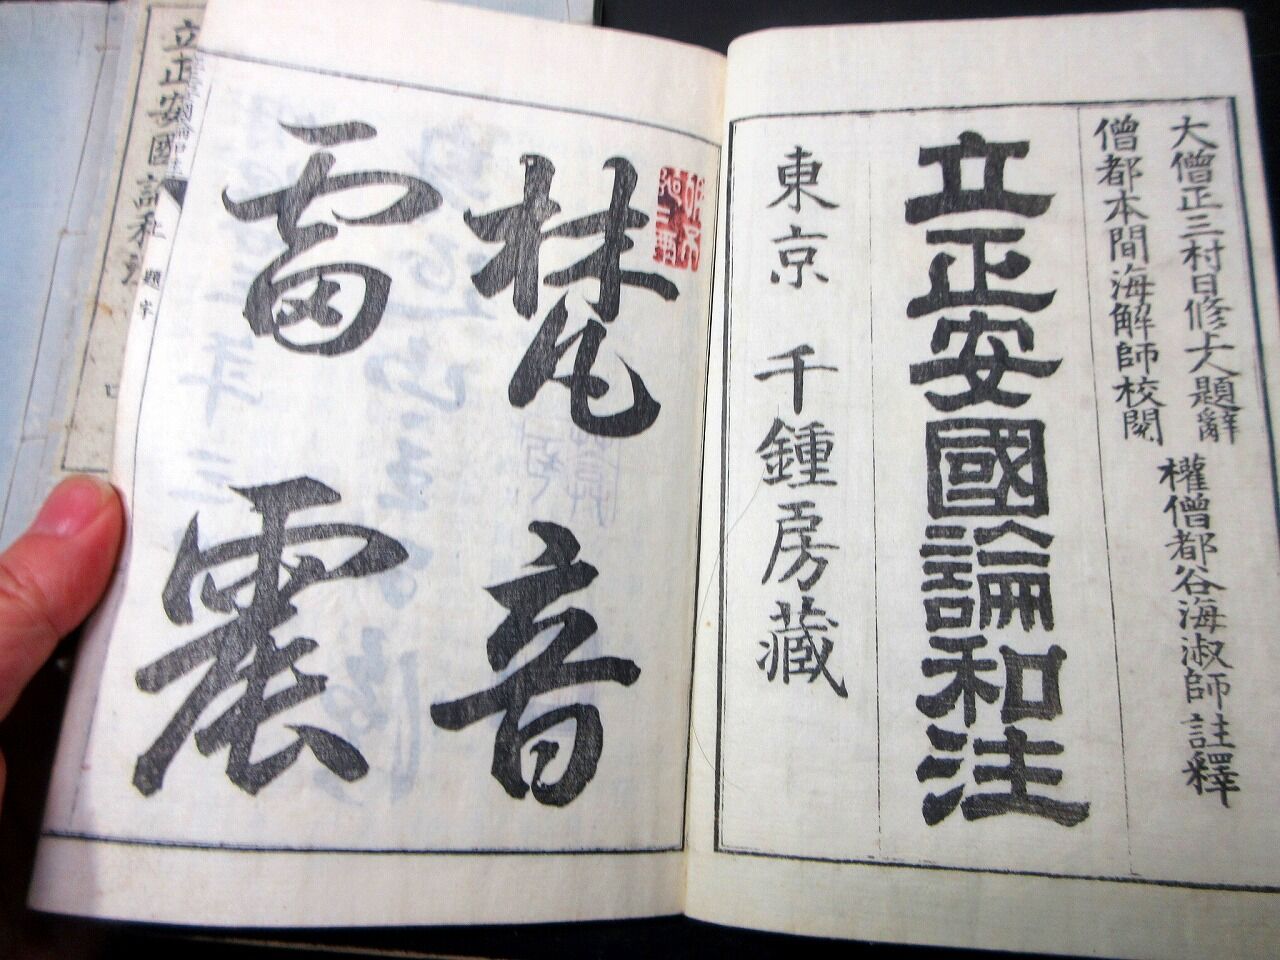 大僧正三村日修上人題辭
權僧都谷海淑師註釋
僧都本間海解師校閱
立正安國論和注
東京 千鍾房藏
梵音
雷震
立正安國論和注 題字